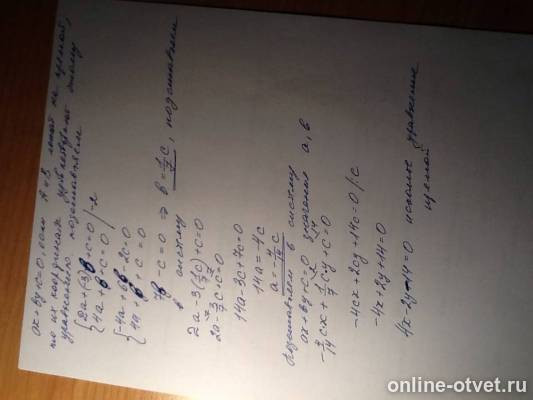 ax + by + c = 0, если A и B лежат на прямой,
то их координаты удовлетворяют данному
уравнению. подставляем
{2a + (-3)b + c = 0 | ·(-2)
{4a + b + c = 0
{-4a + 6b - 2c = 0
{4a + b + c = 0
7b - c = 0 ⇒ b = 1/7 c, подставляем
в систему
2a - 3(1/7 c) + c = 0
2a - 3/7 c + c = 0
14a - 3c + 7c = 0
14a = -4c
a = -4/14 c
Подставляем в систему
ax + by + c = 0 значения a, b
-4/14 cx + 1/7 cy + c = 0
-4cx + 2cy + 14c = 0 | c
-4x + 2y + 14 = 0
4x - 2y - 14 = 0 искомое уравнение
прямой
online-otvet.ru